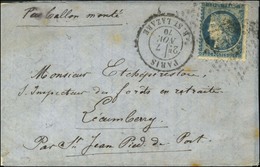 Par Ballon monté
PARIS
R. ST LAZARE
7
NOV.
70
Monsieur Etcheperestoy,
S. Inspecteur des forêts en retraite
Lécumberry
Par St Jean Pied de Port